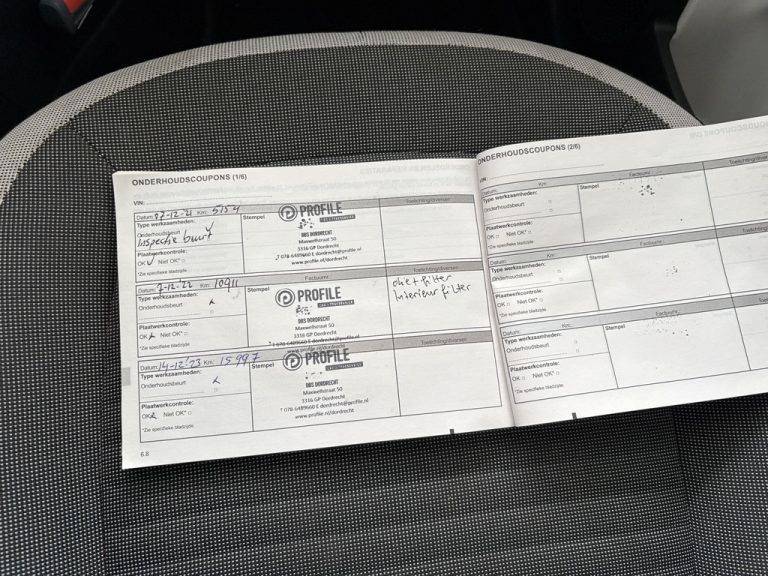 ONDERHOUDSCOUPONS (1/6)
VIN:
Datum: 07-12-21 Km: 5154
Type werkzaamheden:
Onderhoudsbeurt
Inspectie beurt
Plaatwerkcontrole:
OK Niet OK*
*Zie specifieke bladzijde
Stempel
PROFILE
DBS DORDRECHT
Maxwellstraat 50
3316 GP Dordrecht
T 078-6489660 E dordrecht@profile.nl
www.profile.nl/dordrecht
Toelichting/diversen
Datum: 7-12-22 Km: 10911
Type werkzaamheden:
Onderhoudsbeurt
Plaatwerkcontrole:
OK Niet OK*
*Zie specifieke bladzijde
Factuurnr.
Stempel
PROFILE
DBS DORDRECHT
Maxwellstraat 50
3316 GP Dordrecht
T 078-6489660 E dordrecht@profile.nl
www.profile.nl/dordrecht
Toelichting/diversen
oliefilter
Interieur filter
Datum: 14-12-'23 Km: 15997
Type werkzaamheden:
Onderhoudsbeurt
Plaatwerkcontrole:
OK Niet OK*
*Zie specifieke bladzijde
Stempel
PROFILE
DBS DORDRECHT
Maxwellstraat 50
3316 GP Dordrecht
T 078-6489660 E dordrecht@profile.nl
www.profile.nl/dordrecht
Toelichting/diversen
6.8
ONDERHOUDSCOUPONS (2/6)
VIN:
Datum: Km:
Type werkzaamheden:
Onderhoudsbeurt
Plaatwerkcontrole:
OK Niet OK*
*Zie specifieke bladzijde
Factuurnr.
Stempel
Toelichting/diversen
Datum: Km:
Type werkzaamheden:
Onderhoudsbeurt
Plaatwerkcontrole:
OK Niet OK*
*Zie specifieke bladzijde
Factuurnr.
Stempel
Datum: Km:
Type werkzaamheden:
Onderhoudsbeurt
Plaatwerkcontrole:
OK Niet OK*
*Zie specifieke bladzijde
Factuurnr.
Stempel